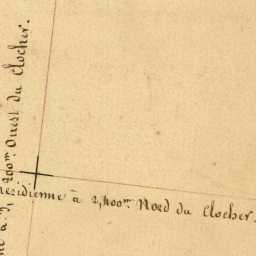 200m. Ouest du Clocher.
Méridienne à 2,400m. Nord du Clocher.